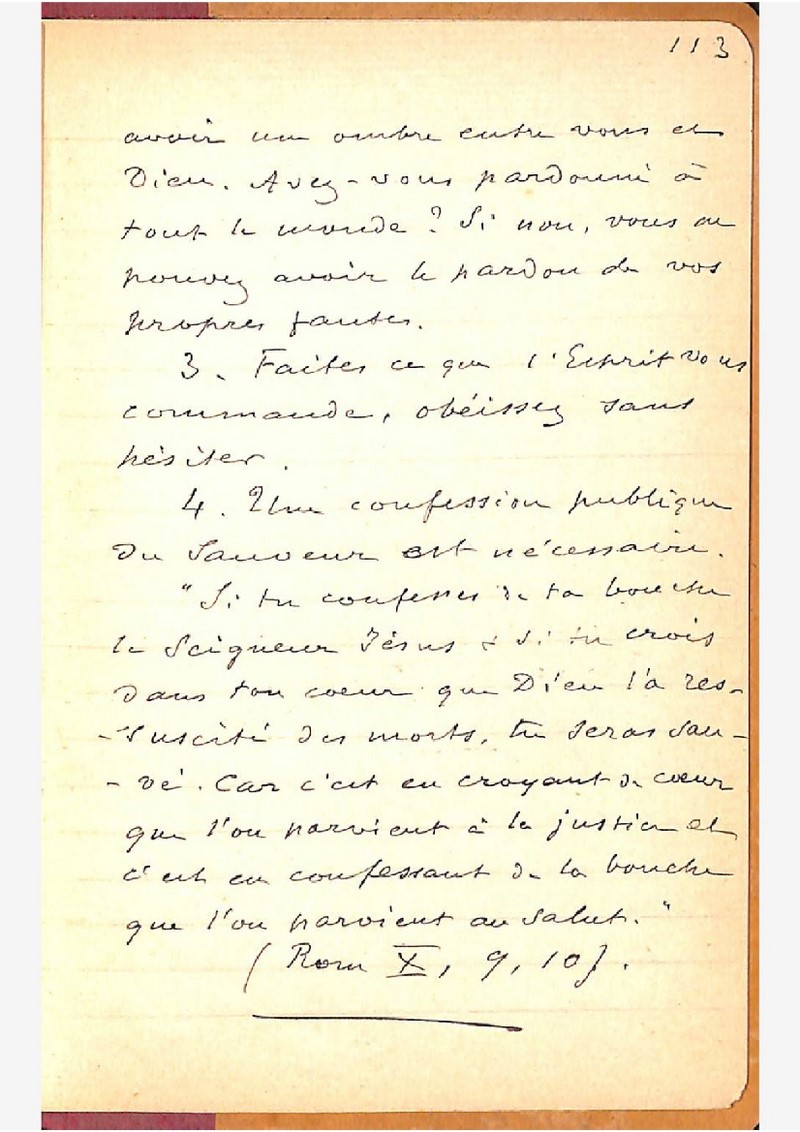 113
avoir une ombre entre vous et
Dieu. Avez-vous pardonné à
tout le monde ? Si non, vous ne
pouvez avoir le pardon de vos
propres fautes.
3. Faites ce que l'Esprit vous
commande, obéissez sans
hésiter.
4. Une confession publique
du Sauveur est nécessaire.
"Si tu confesses de ta bouche
le Seigneur Jésus & si tu crois
dans ton coeur que Dieu l'a res-
-suscité des morts, tu seras sau-
-vé. Car c'est en croyant du cœur
que l'on parvient à la justice et
c'est en confessant de la bouche
que l'on parvient au salut."
(Rom X, 9, 10).